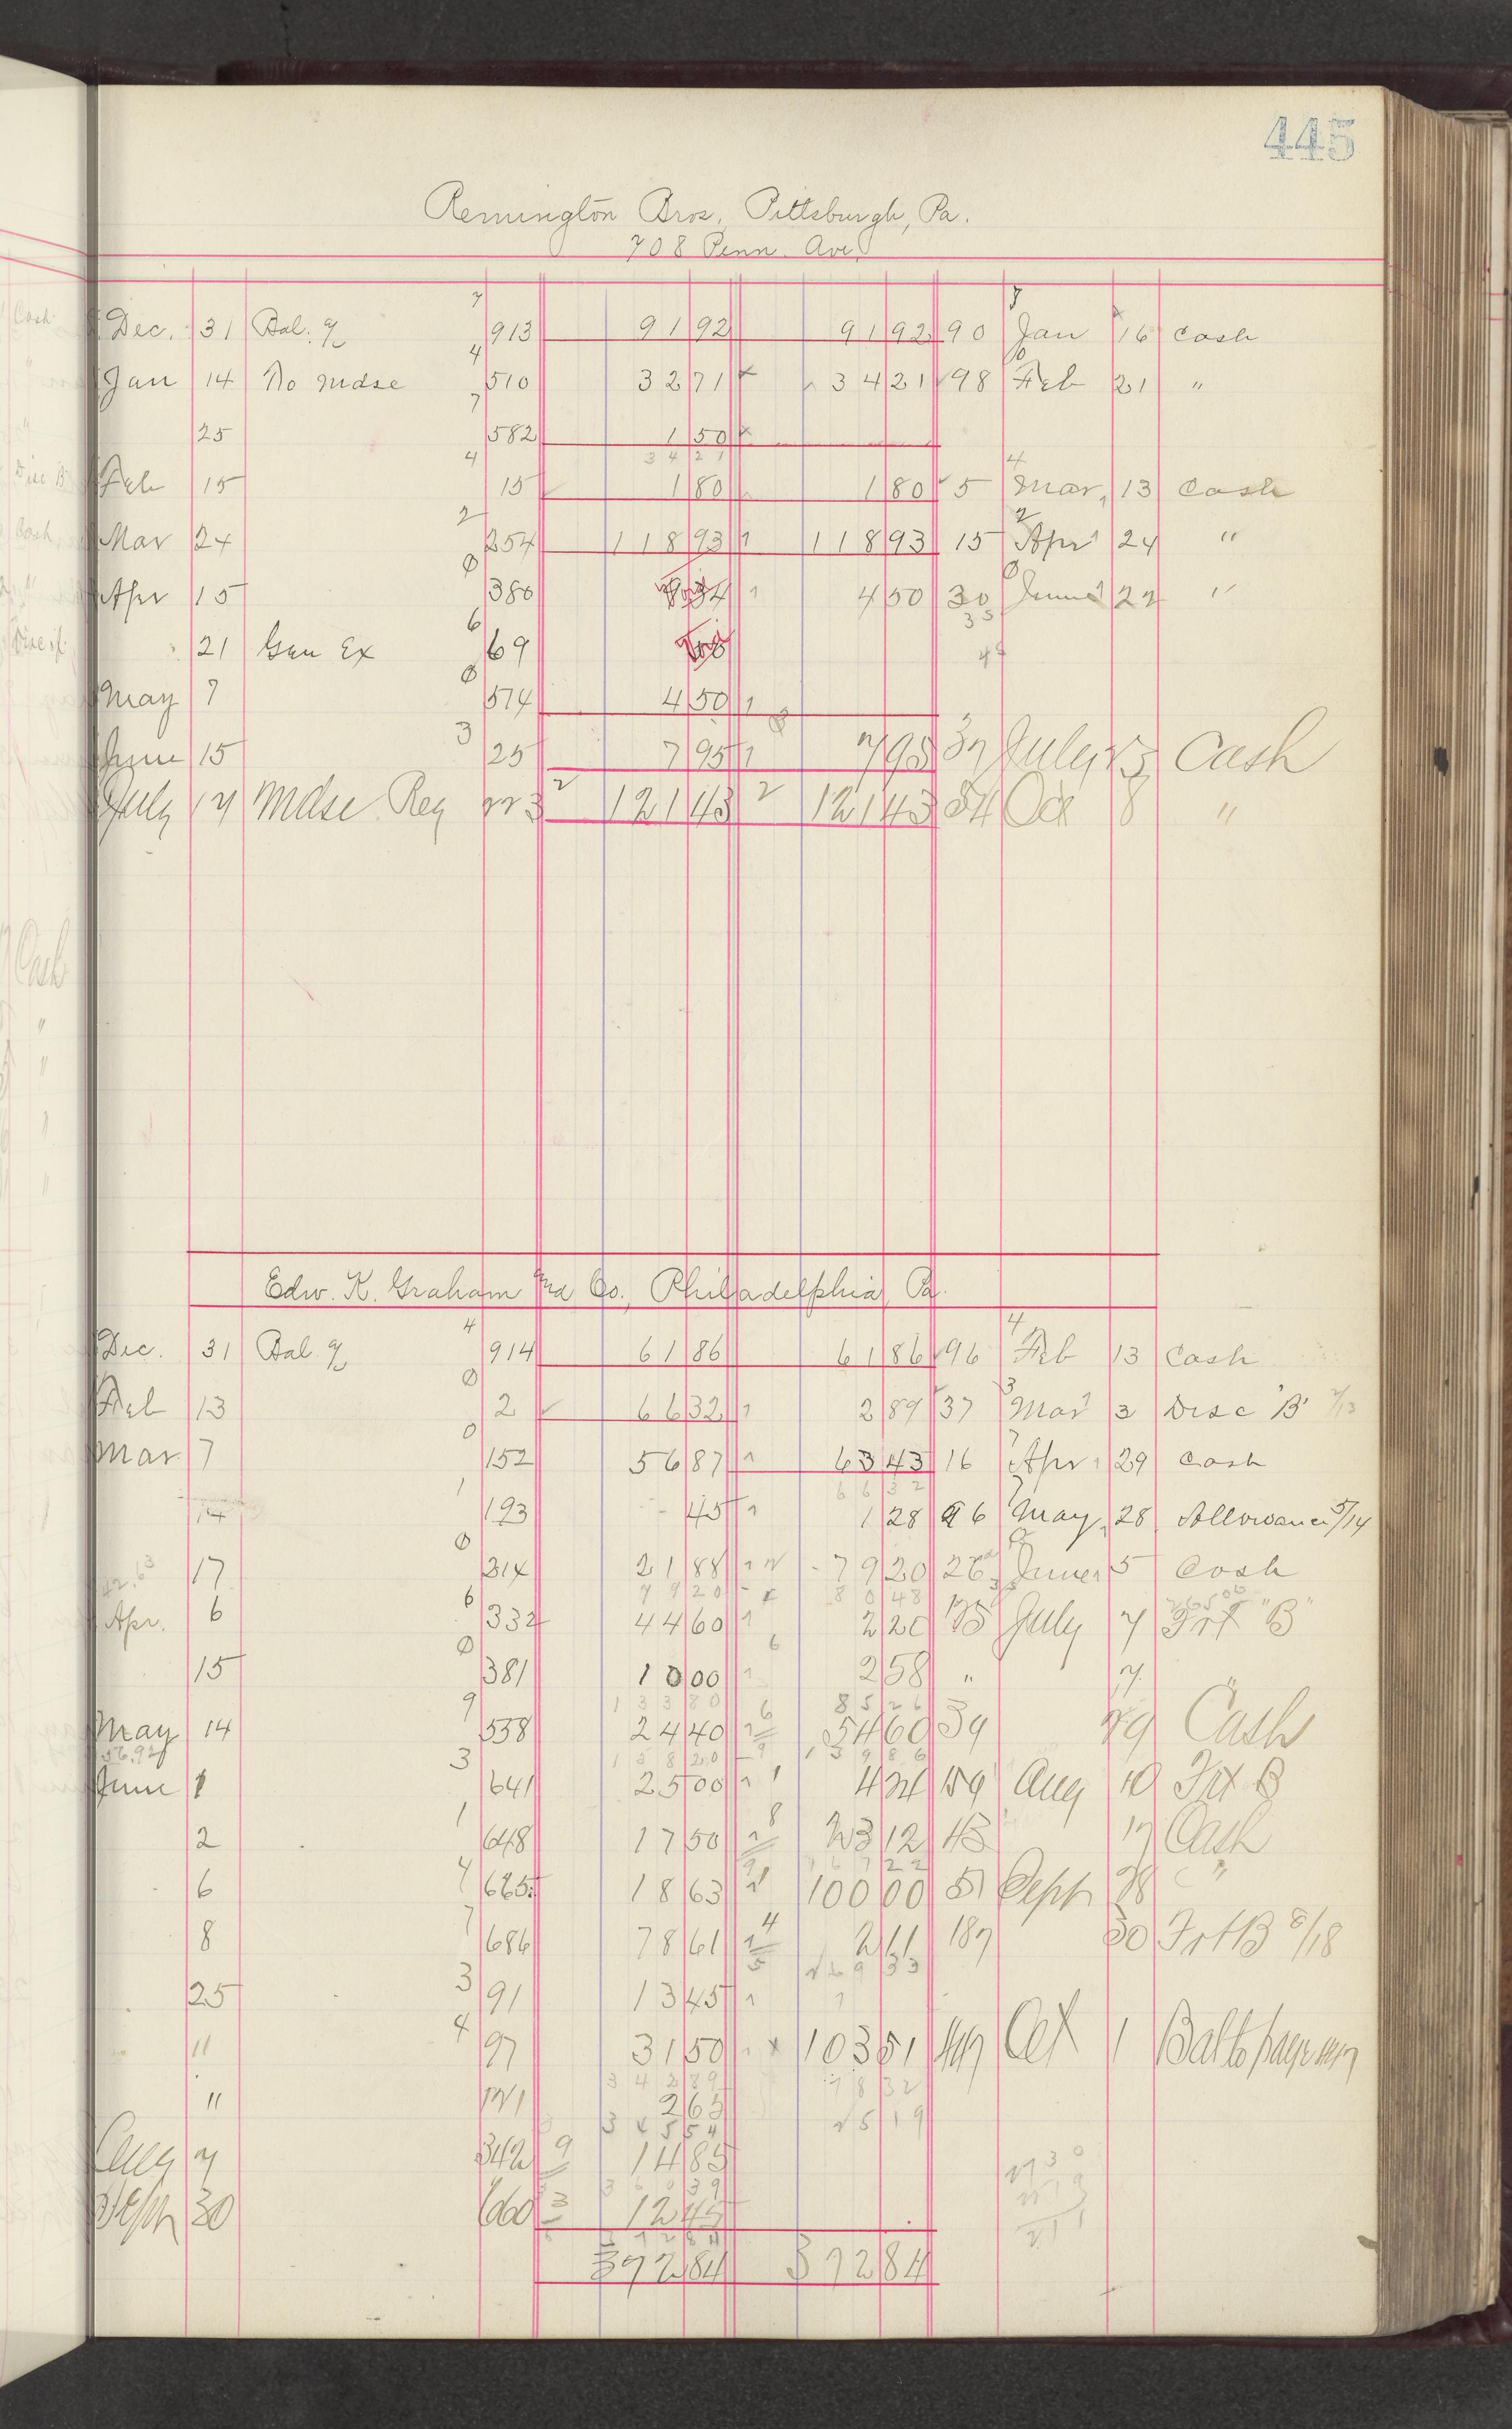 445
Remington Bros, Pittsburgh, Pa.
708 Penn. Ave.
Dec. 31 Bal. 7 913 91 92 91 92 90 Jan 16 Cash
Jan 14 To Mdse 4 510 32 71 34 21 98 Feb 21 "
25 7 582 1 50
34 21
Feb 15 4 15 1 80 1 80 5 Mar, 13 Cash
Mar 24 2 254 118 93 118 93 15 Apr 24 "
Apr 15 0 380 4 50 30 June 22 "
35
21 Gen Ex 6 69
May 7 0 574 4 50
June 15 3 25 7 95 7 95 37 July 23 Cash
July 17 Mdse Reg 223 2 121 43 2 121 43 54 Oct 8 "
Edw. K. Graham Co., Philadelphia, Pa.
Dec. 31 Bal. 4 914 61 86 61 86 96 Feb 13 Cash
Feb 13 0 2 66 32 2 89 37 Mar 3 Disc "B" 2/13
Mar 7 0 152 56 87 63 43 16 Apr 29 Cash
66 32
14 1 193 45 1 28 26 May 28 Allowance 5/14
17 0 314 21 88 79 20 26 June 5 Cash
79 20 80 48
Apr. 6 6 332 44 60 2 20 135 July 7 Frt "B"
15 0 381 10 00 2 58 " 7 "
133 80 85 26
May 14 9 538 24 40 54 60 39 29 Cash
158 20 139 86
June 1 3 641 25 00 4 24 159 Aug 10 Frt B
2 1 648 17 50 23 12 43 17 Cash
167 22
6 4 685 18 63 100 00 51 Sept 28 "
8 7 686 78 61 2 11 187 30 Frt B 8/18
269 33
25 3 91 13 45
" 4 97 31 50 103 51 447 Oct 1 Bal to page 447
342 89
" 121 2 65
345 54 25 19
Aug 7 342 9 14 85
360 39
Sept 30 660 3 12 45
372 84
372 84 372 84